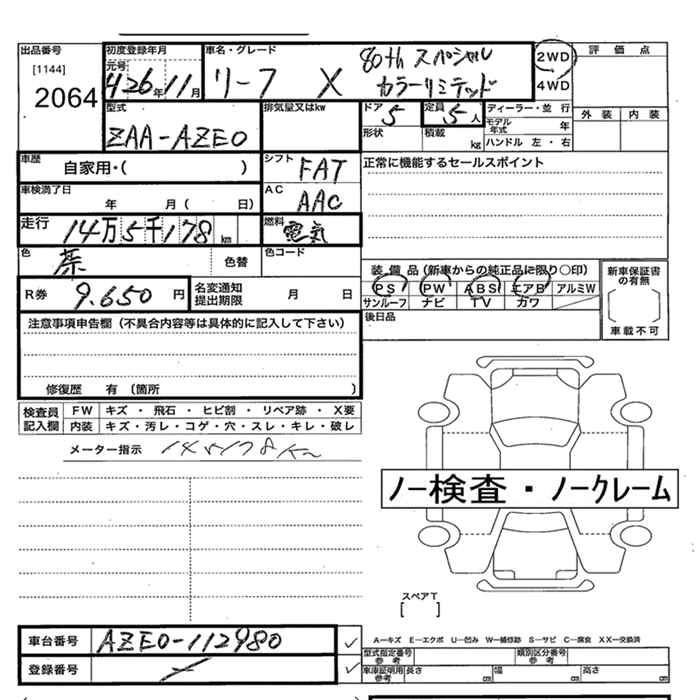 出品番号 初度登録年月 車名・グレード 80th スペシャル 2WD 評価点
[1144] 元号 426年11月 リーフ X カラーリミテッド 4WD
2064 型式 排気量又はkw ドア 5 定員 5人 ディーラー・並行 外装 内装
ZAA-AZE0 形状 積載 kg モデル年式 年
ハンドル 左・右
車歴 自家用・( ) シフト FAT 正常に機能するセールスポイント
車検満了日 年 月( 日) AC AAC
走行 14万5千178km 燃料 電気
色 茶 色替 色コード 装備品(新車からの純正品に限り○印) 新車保証書の有無
R券 9.650円 名変通知提出期限 月 日 PS PW ABS エアB アルミW
サンルーフ ナビ TV カワ
注意事項申告欄(不具合内容等は具体的に記入して下さい) 後日品 車載不可
修復歴 有 (箇所 )
検査員記入欄 FW キズ・飛石・ヒビ割・リペア跡・X要
内装 キズ・汚レ・コゲ・穴・スレ・キレ・破レ
メーター指示 145178Km
ノー検査・ノークレーム
スペアT
[ ]
車台番号 AZE0-112980 A-キズ E-エクボ U-凹み W-補修跡 S-サビ C-腐食 XX-交換済
型式指定番号 参考 類別区分番号 参考
登録番号 車庫証明用 参考 長さ cm 幅 cm 高さ cm